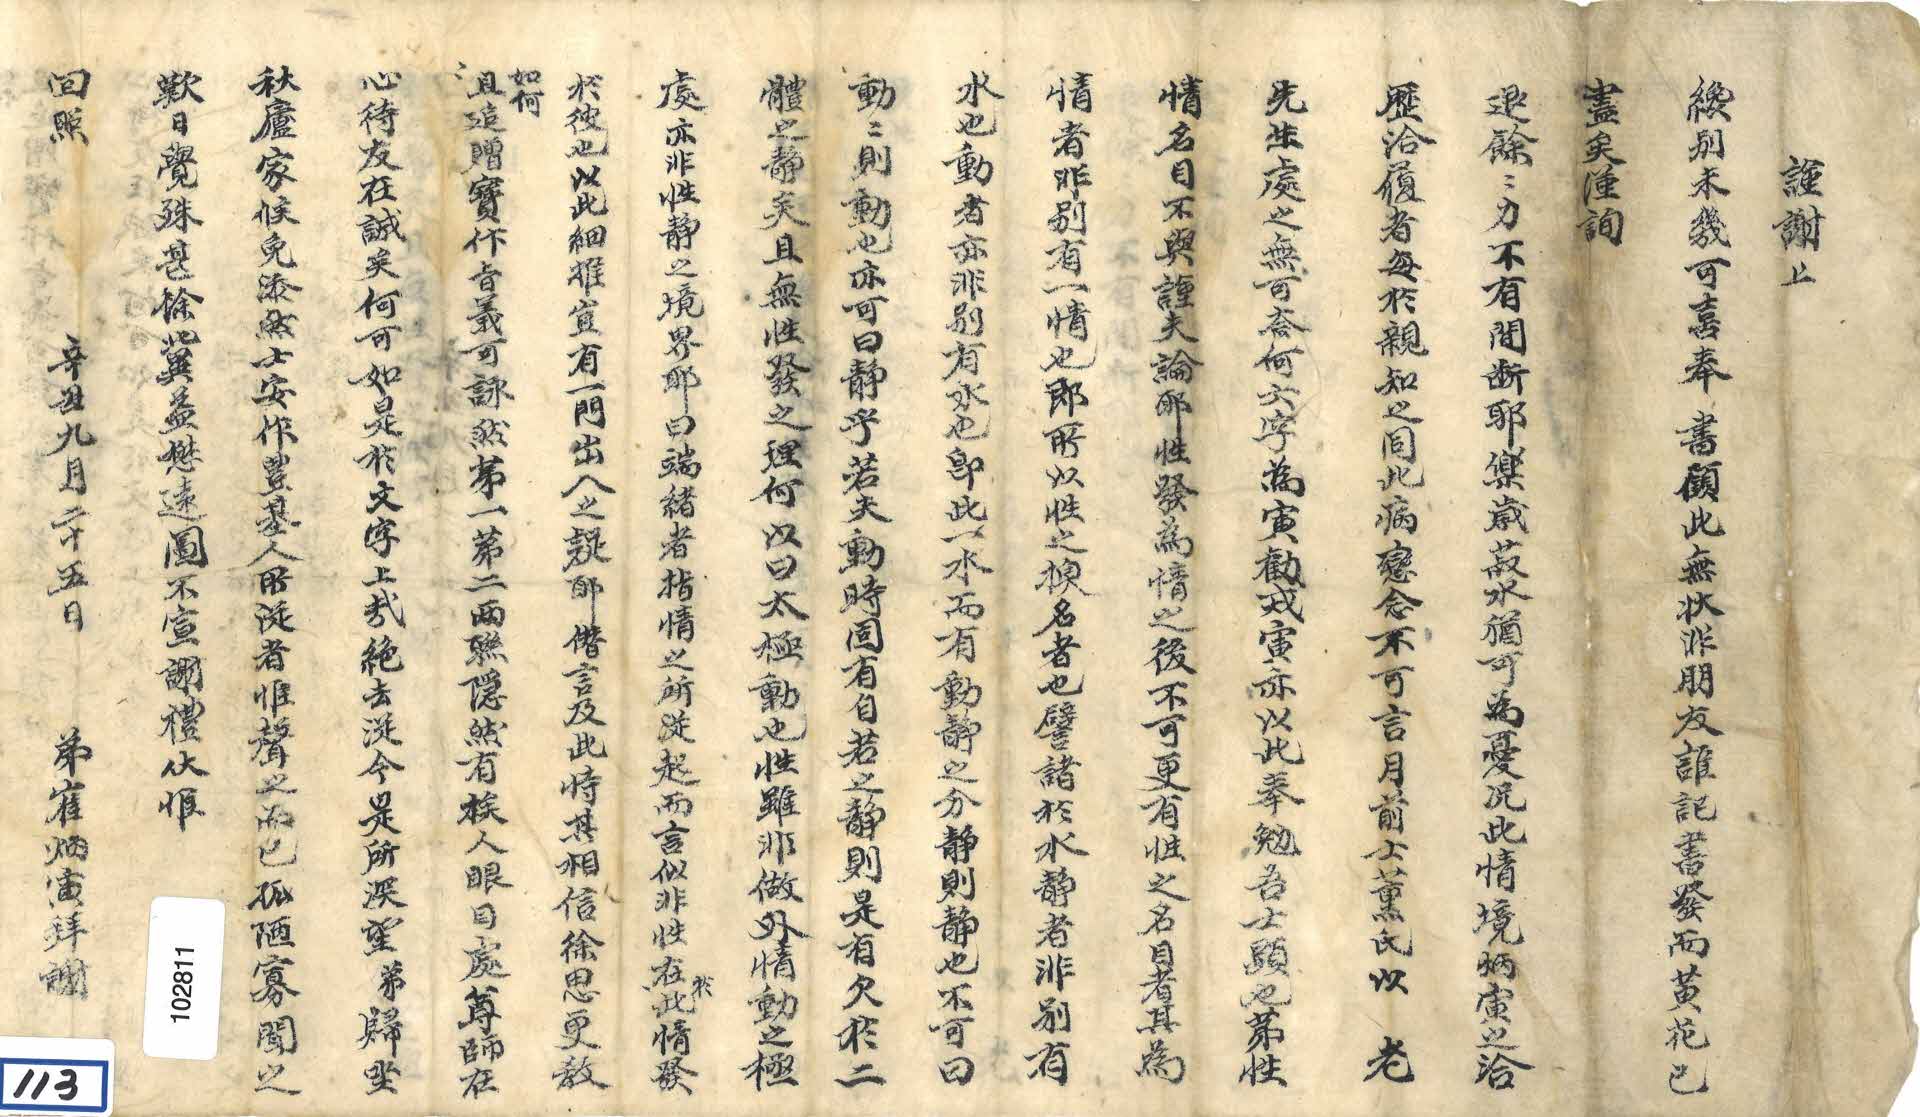 謹謝上
纔別未幾可喜奉 書顧此無狀非朋友誰記書發而黃花已
盡矣謹詢
退餘〻力不有間斷耶樂歲菽水猶可爲憂況此情境炳寅之洽
歷洽履者每於親知之同此病戀念不可言月前士薰氏以 老
先生處之無可奈何六字爲寅勸戒寅亦以此奉勉吾士顯也第性
情名目不與謹夫論耶性發爲情之後不可更有性之名目者其爲
情者非別有一情也卽所以性之換名者也譬諸於水靜者非別有
水也動者亦非別有水也卽此一水而有動靜之分靜則靜也不可曰
動〻則動也亦可曰靜乎若夫動時固有自若之靜則是有欠於二
體之靜矣且無性發之理何以曰太極動也性雖非做外情動之極
處亦非性靜之境界耶曰端緖者指情之所從起而言似非性在此於情發
於彼也以此細推宜有一門出入之疑耶僭言及此恃其相信徐思更敎
如何
〻且追贈寶作音義可詠然第一第二兩聯隱然有挨人眼目處尊師在
心待友在誠矣何可如是於文字上哉絶去從今是所深望 弟歸坐
秋廬家候免添然士安作豈基人所從者惟聲之而已孤陋寡聞之
歎日覺殊甚徐此冀益懋遠圖不宣謝禮伏惟
回照
辛丑九月二十五日 弟崔炳寅拜謝
102811
113